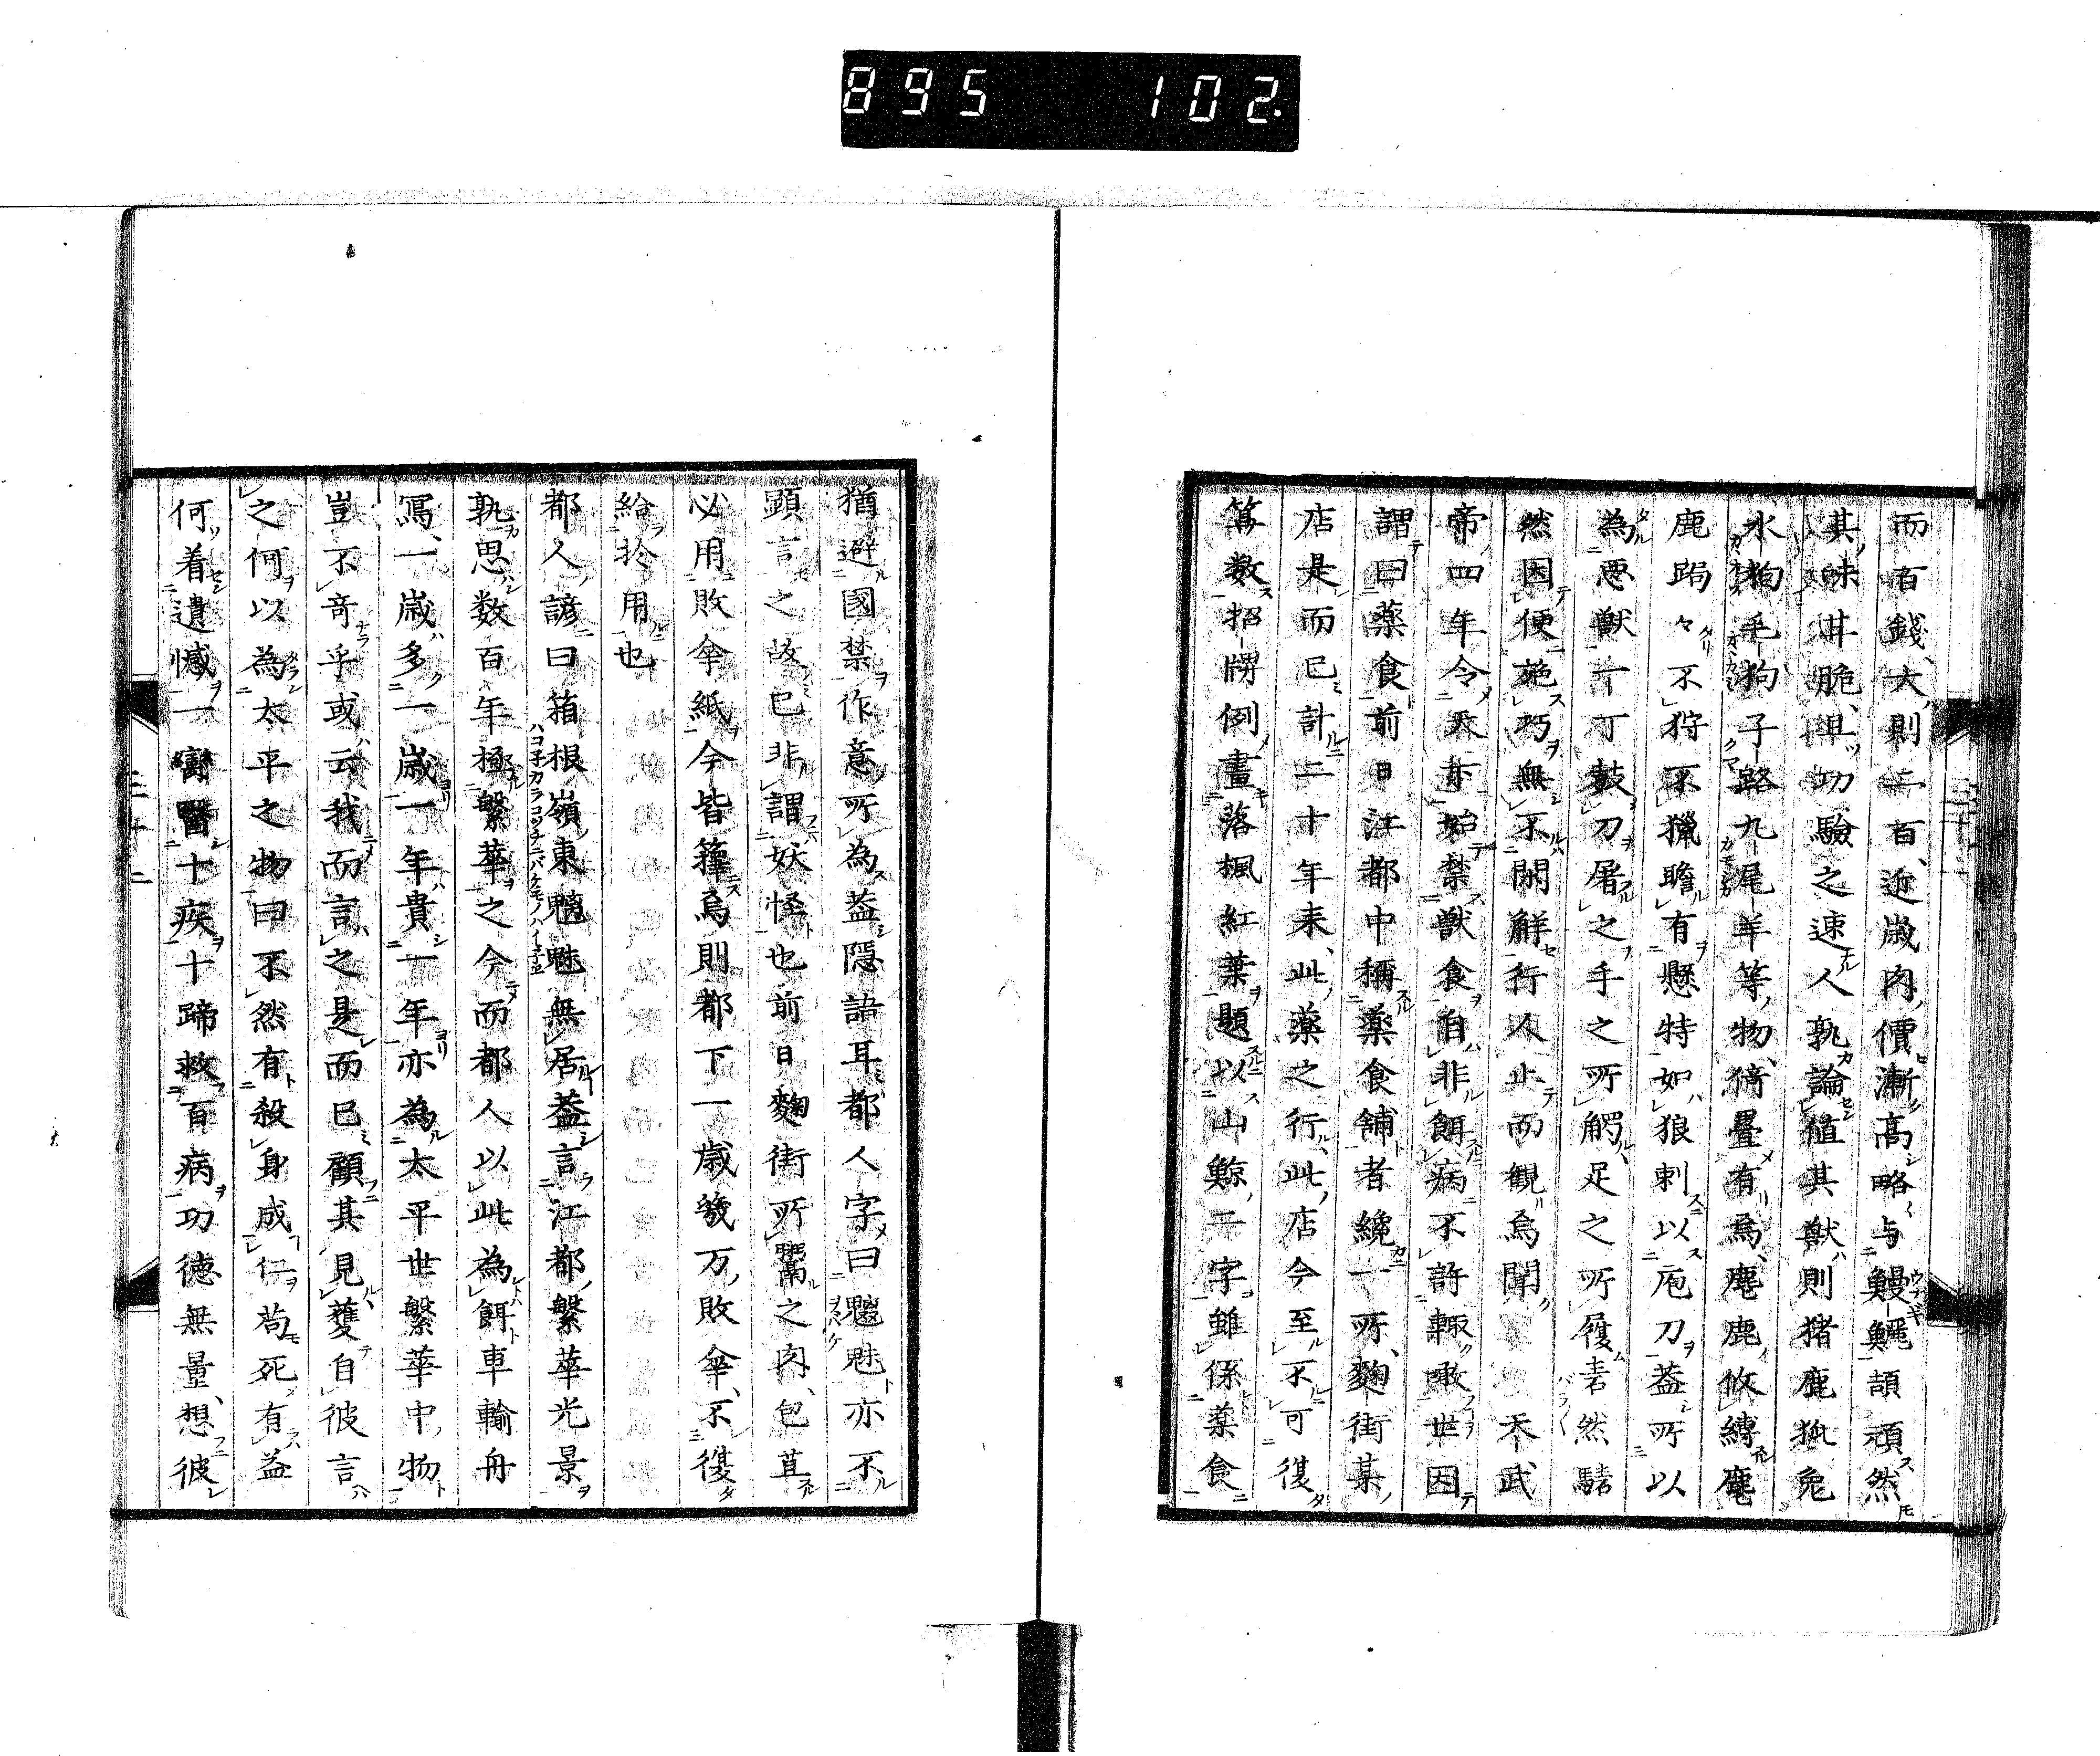 895 102.
而百錢、大則二百、近歳肉價漸高略与鰻鱺頡頏然
其味甘脆、且功驗之速人孰論値其獣則猪鹿狐兎
水狗毛狗子路九尾羊等物、倚疊有焉、麀鹿攸縛麀
鹿跼々不狩不獵瞻有懸特如狼刺以庖刀蓋所以
為悪獣一丁鼓刀屠之手之所觸足之所履砉然騞
然因便施巧無不開解行人止而観焉聞天武
帝四年令天下始禁獣食自非餌病不許輙噉世因
謂曰薬食前日江都中稱薬食舗者纔一所、麹街某
店是而已計二十年来、此薬之行、此店今至不可復
筭数招牌例畫落楓紅葉題以山鯨二字雖係薬食
猶避國禁作意所為蓋隠語耳都人字曰魑魅亦不
顕言之故已非謂妖怪也前日麹街所鬻之肉、包苴
必用敗傘紙今皆籜焉則都下一歳幾万敗傘、不復
給於用也
都人諺曰箱根嶺東魑魅無居蓋言江都繁華光景
ハコ子カラコツチニバケモノハイ子エ
孰思数百年極繁華之今而都人以此為餌車輸舟
寫、一歳多一歳一年貴一年亦為太平世繁華中物
豈不奇乎或云我而言之是而已顧其見甕自彼言
之何以為太平之物曰不然有殺身成仁苟死有益
何着遺憾一臠醫十疾十蹄救百病功徳無量、想彼
三十二